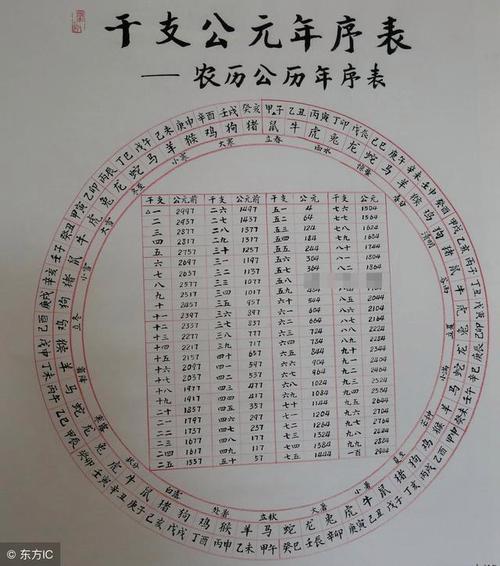 干支公元年序表
——农历公历年序表
甲子 乙丑 丙寅 丁卯 戊辰 己巳 庚午 辛未 壬申 癸酉 甲戌 乙亥 丙子 丁丑 戊寅 己卯 庚辰 辛巳 壬午 癸未 甲申 乙酉 丙戌 丁亥 戊子 己丑 庚寅 辛卯 壬辰 癸巳 甲午 乙未 丙申 丁酉 戊戌 己亥 庚子 辛丑 壬寅 癸卯 甲辰 乙巳 丙午 丁未 戊申 己酉 庚戌 辛亥 壬子 癸丑 甲寅 乙卯 丙辰 丁巳 戊午 己未 庚申 辛酉 壬戌 癸亥
鼠 牛 虎 兔 龙 蛇 马 羊 猴 鸡 狗 猪 鼠 牛 虎 兔 龙 蛇 马 羊 猴 鸡 狗 猪 鼠 牛 虎 兔 龙 蛇 马 羊 猴 鸡 狗 猪 鼠 牛 虎 兔 龙 蛇 马 羊 猴 鸡 狗 猪 鼠 牛 虎 兔 龙 蛇 马 羊 猴 鸡 狗 猪
立春 雨水 惊蛰 春分 清明 谷雨 立夏 小满 芒种 小暑 大暑 立秋 处暑 白露 秋分 立冬 小雪 大雪 冬至 小寒 大寒
干支 公元前 干支 公元前 干支 公元 干支 公元
△一 2997 二六 1497 五一 4 七六 1504
二 2937 二七 1437 五二 64 七七 1564
三 2877 二八 1377 五三 124 七八 1624
四 2817 二九 1317 五四 184 七九 1684
五 2757 三十 1257 五五 244 八十 1744
六 2697 三一 1197 五六 304 八一 1804
七 2637 三二 1137 五七 364 八二 1864
八 2577 三三 1077 五八
九 2517 三四 1017 五九 484
十 2457 三五 957 六十 544 八五 2044
十一 2397 三六 897 六一 604 八六 2104
十二 2337 三七 837 六二 664 八七 2164
十三 2277 三八 777 六三 724 八八 2224
十四 2217 三九 717 六四 784 八九 2284
十五 2157 四十 657 六五 844 九十 2344
十六 2097 四一 597 六六 904 九一 2404
十七 2037 四二 537 六七 964 九二 2464
十八 1977 四三 477 六八 1024 九三 2524
十九 1917 四四 417 六九 1084 九四 2584
二十 1857 四五 357 七十 1144 九五 2644
二一 1797 四六 297 七一 1204 九六 2704
二二 1737 四七 237 七二 1264 九七 2764
二三 1677 四八 177 七三 1324 九八 2824
二四 1617 四九 117 七四 1384 九九 2884
二五 1557 五十 57 七五 1444 一百 2944
© 东方IC